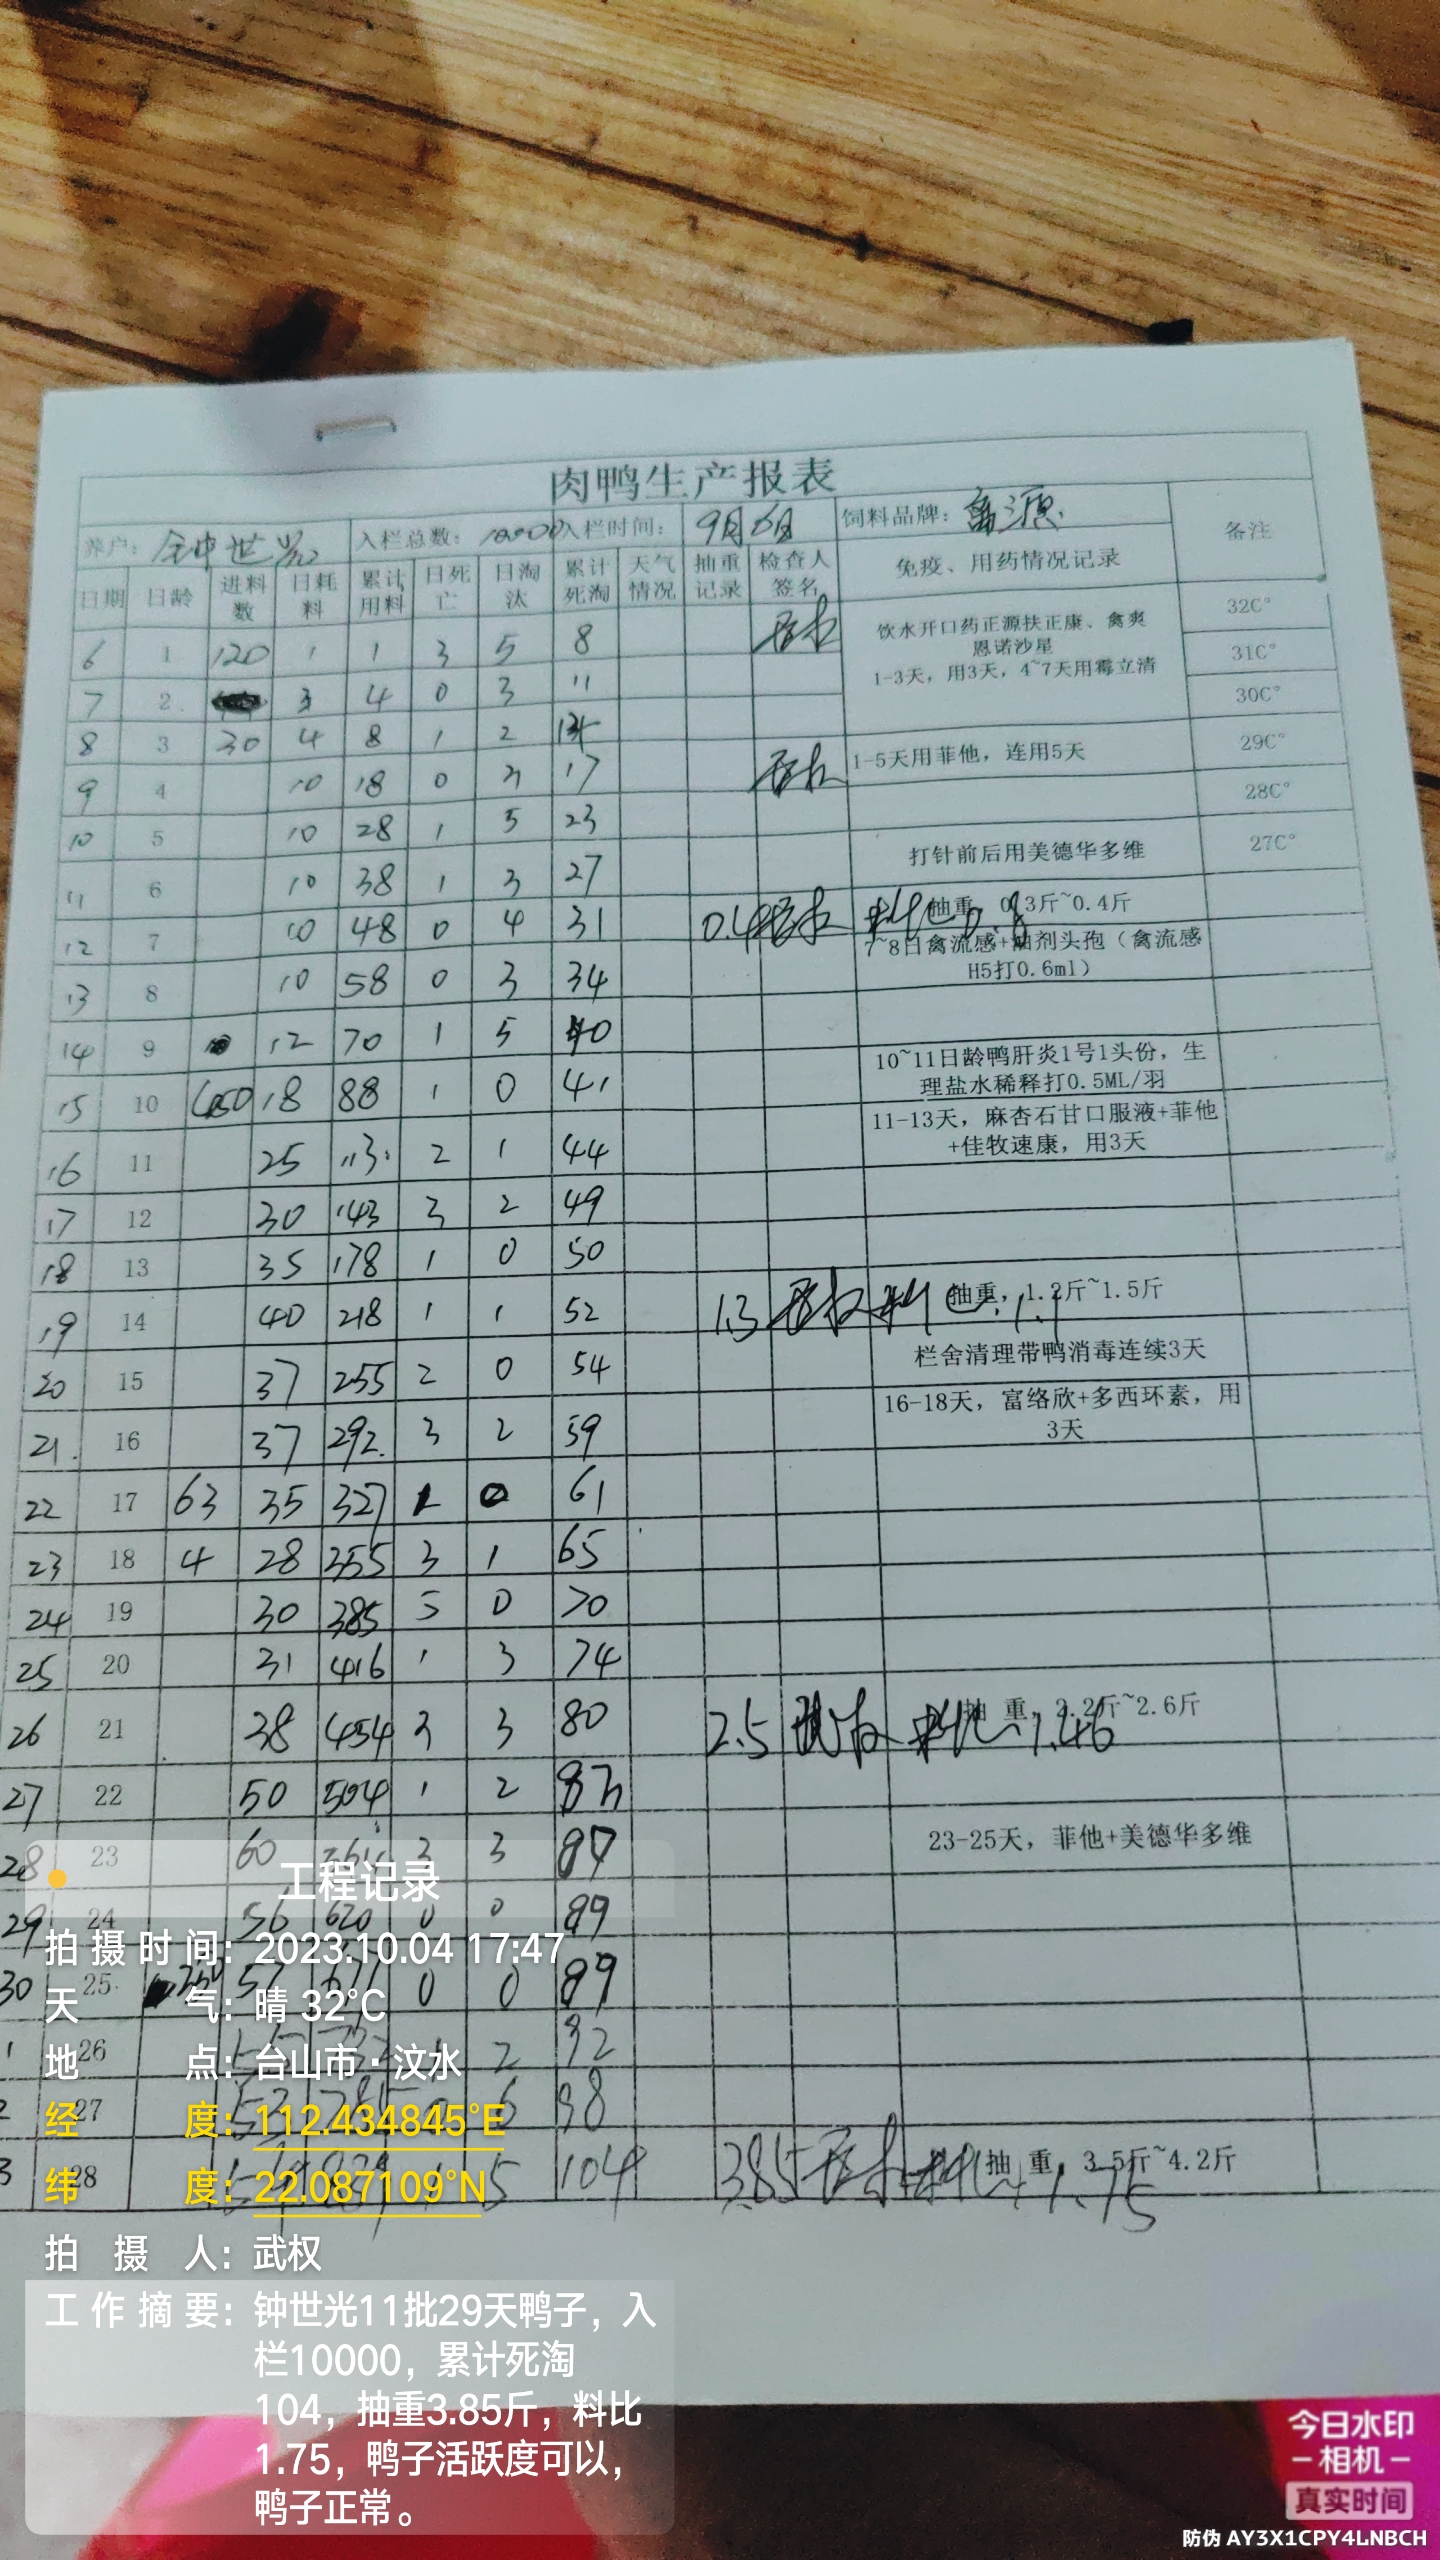 肉鸭生产报表
养户: 钟世光 入栏总数: 10000 入栏时间: 9月6日 饲料品牌: 富源 备注
日期 日龄 进料数 日耗料 累计用料 日死亡 日淘汰 累计死淘 天气情况 抽重记录 检查人签名 免疫、用药情况记录
6 1 120 1 1 3 5 8 武权 饮水开口药正源扶正康、禽爽恩诺沙星 32C°
7 2 3 4 0 3 11 1-3天，用3天，4~7天用霉立清 31C°
8 3 30 4 8 1 2 14 30C°
9 4 10 18 0 3 17 武权 1-5天用菲他，连用5天 29C°
10 5 10 28 1 5 23 28C°
11 6 10 38 1 3 27 打针前后用美德华多维 27C°
12 7 10 48 0 4 31 0.4 武权 抽重，0.3斤~0.4斤 料比0.8
13 8 10 58 0 3 34 7~8日禽流感+油剂头孢（禽流感H5打0.6ml）
14 9 12 70 1 5 40
15 10 18 88 1 0 41 10~11日龄鸭肝炎1号1头份，生理盐水稀释打0.5ML/羽
16 11 25 113 2 1 44 11-13天，麻杏石甘口服液+菲他+佳牧速康，用3天
17 12 30 143 3 2 49
18 13 35 178 1 0 50
19 14 40 218 1 1 52 1.3 武权 料比:1.1 抽重，1.2斤~1.5斤
20 15 37 255 2 0 54 栏舍清理带鸭消毒连续3天
21 16 37 292 3 2 59 16-18天，富络欣+多西环素，用3天
22 17 63 35 327 1 0 61
23 18 4 28 355 3 1 65
24 19 30 385 5 0 70
25 20 31 416 1 3 74
26 21 38 454 3 3 80 2.5 武权 料比1.46 抽 重，2.2斤~2.6斤
27 22 50 504 1 2 83
28 23 60 3 3 23-25天，菲他+美德华多维
29 24 56 620 0 0 89
30 25 0 0 89
1 26 2 92
2 27 6 98
3 28 5 104 3.85 武权 料比 1.75 抽 重，3.5斤~4.2斤
工程记录
拍摄时间: 2023.10.04 17:47
天 气: 晴 32°C
地 点: 台山市·汶水
经 度: 112.434845°E
纬 度: 22.087109°N
拍 摄 人: 武权
工作摘要: 钟世光11批29天鸭子，入
栏10000，累计死淘
104，抽重3.85斤，料比
1.75，鸭子活跃度可以，
鸭子正常。
今日水印
相机
真实时间
防伪 AY3X1CPY4LNBCH